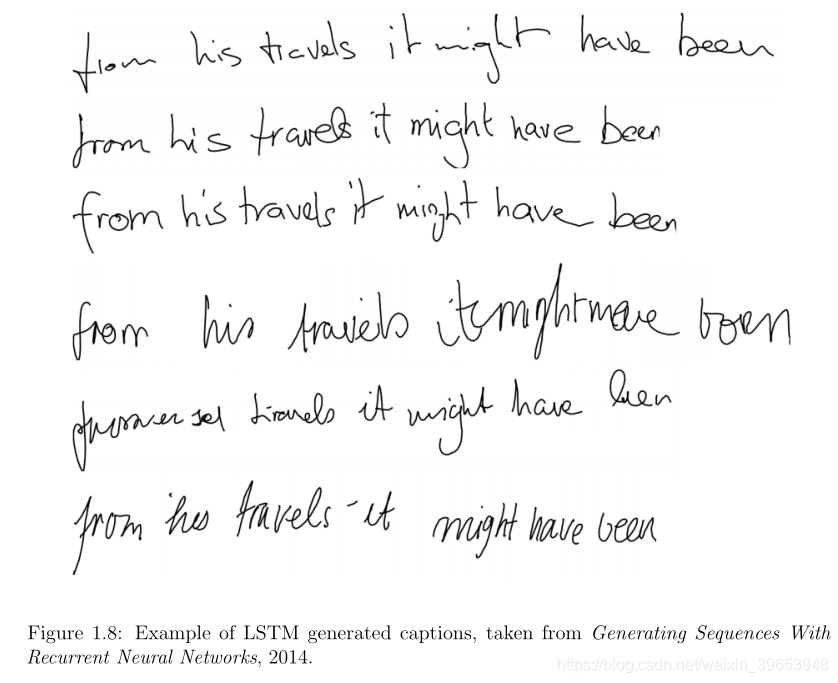 from his travels it might have been
from his travels it might have been
from his travels it might have been
from his travels it might have been
travels it might have been
from his travels it might have been
Figure 1.8: Example of LSTM generated captions, taken from Generating Sequences With
Recurrent Neural Networks, 2014.
https://blog.csdn.net/weixin_39653948